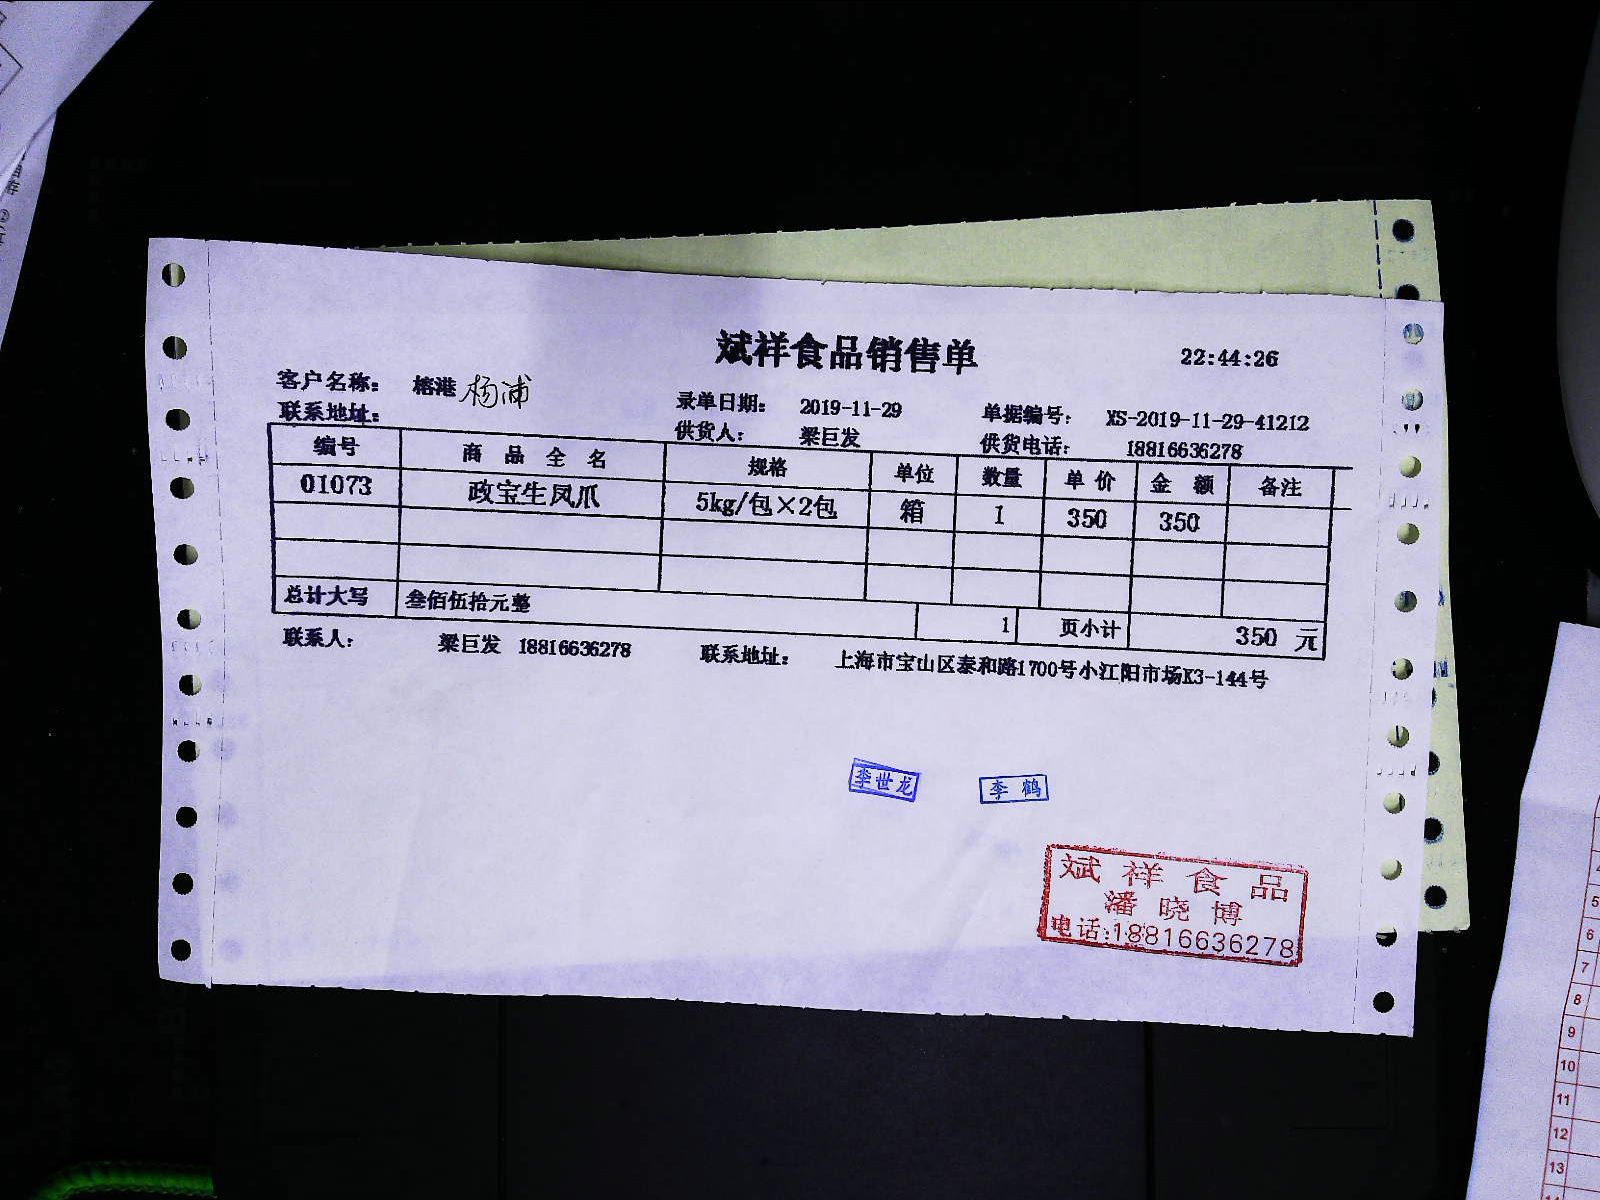 斌祥食品销售单
22:44:26
客户名称: 榕港 杨浦
录单日期: 2019-11-29 单据编号: XS-2019-11-29-41212
联系地址:
供货人: 梁巨发 供货电话: 18816636278
编号 商品全名 规格 单位 数量 单价 金额 备注
01073 政宝生凤爪 5kg/包×2包 箱 1 350 350
总计大写 叁佰伍拾元整 1 页小计 350 元
联系人: 梁巨发 18816636278 联系地址: 上海市宝山区泰和路1700号小江阳市场K3-144号
李世龙 李鹤
斌祥食品
潘晓博
电话:18816636278
5
6
7
8
9
10
11
12
13